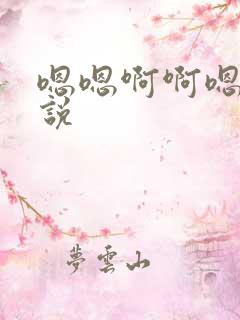 嗯嗯啊啊嗯
說
夢雲山